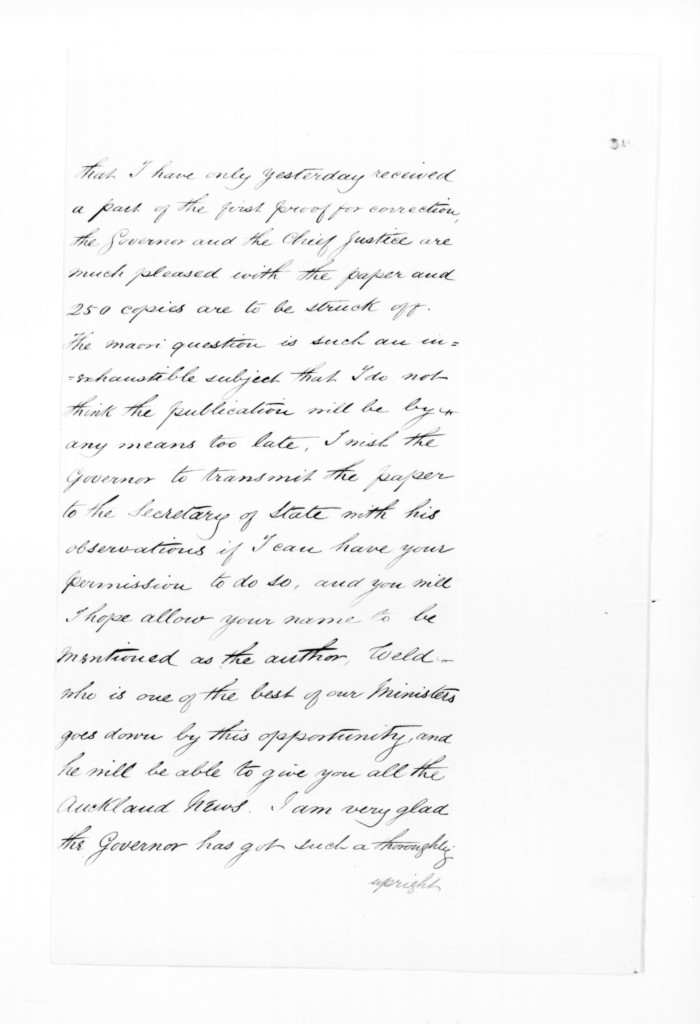 that I have only yesterday received
a part of the first proof for correction,
the Governor and the Chief Justice are
much pleased with the paper and
250 copies are to be struck off.
The maori question is such an in=
=exhaustible subject that I do not
think the publication will be by
any means too late, I wish the
Governor to transmit the paper
to the Secretary of State with his
observations if I can have your
permission to do so, and you will
I hope allow your name to be
mentioned as the author, Weld
who is one of the best of our Ministers
goes down by this opportunity, and
he will be able to give you all the
Auckland News. I am very glad
the Governor has got such a thoroughly
upright